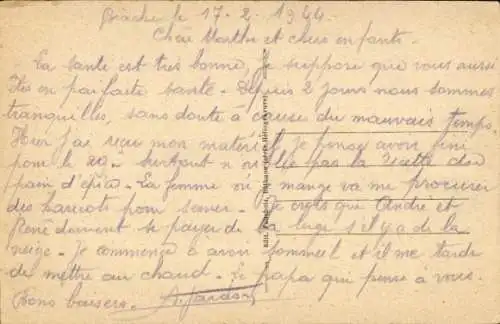 le 17-2-1944
Chère Marthe et chers enfants.
La santé est très bonne, je suppose que vous aussi
êtes en parfaite santé. Depuis 2 jours nous sommes
tranquilles, sans doute à cause du mauvais temps.
Hier j'ai reçu mon matériel, je pense avoir fini
pour le 29. Surtout n'oublie pas la recette du
pain d'épice. La femme où je mange va me procurer
des haricots pour semer. Je crois que André et
René doivent se payer de la luge s'il y a de la
neige. Je commence à avoir sommeil et il me tarde
de mettre au chaud. Le papa qui pense à vous.
Bons baisers.